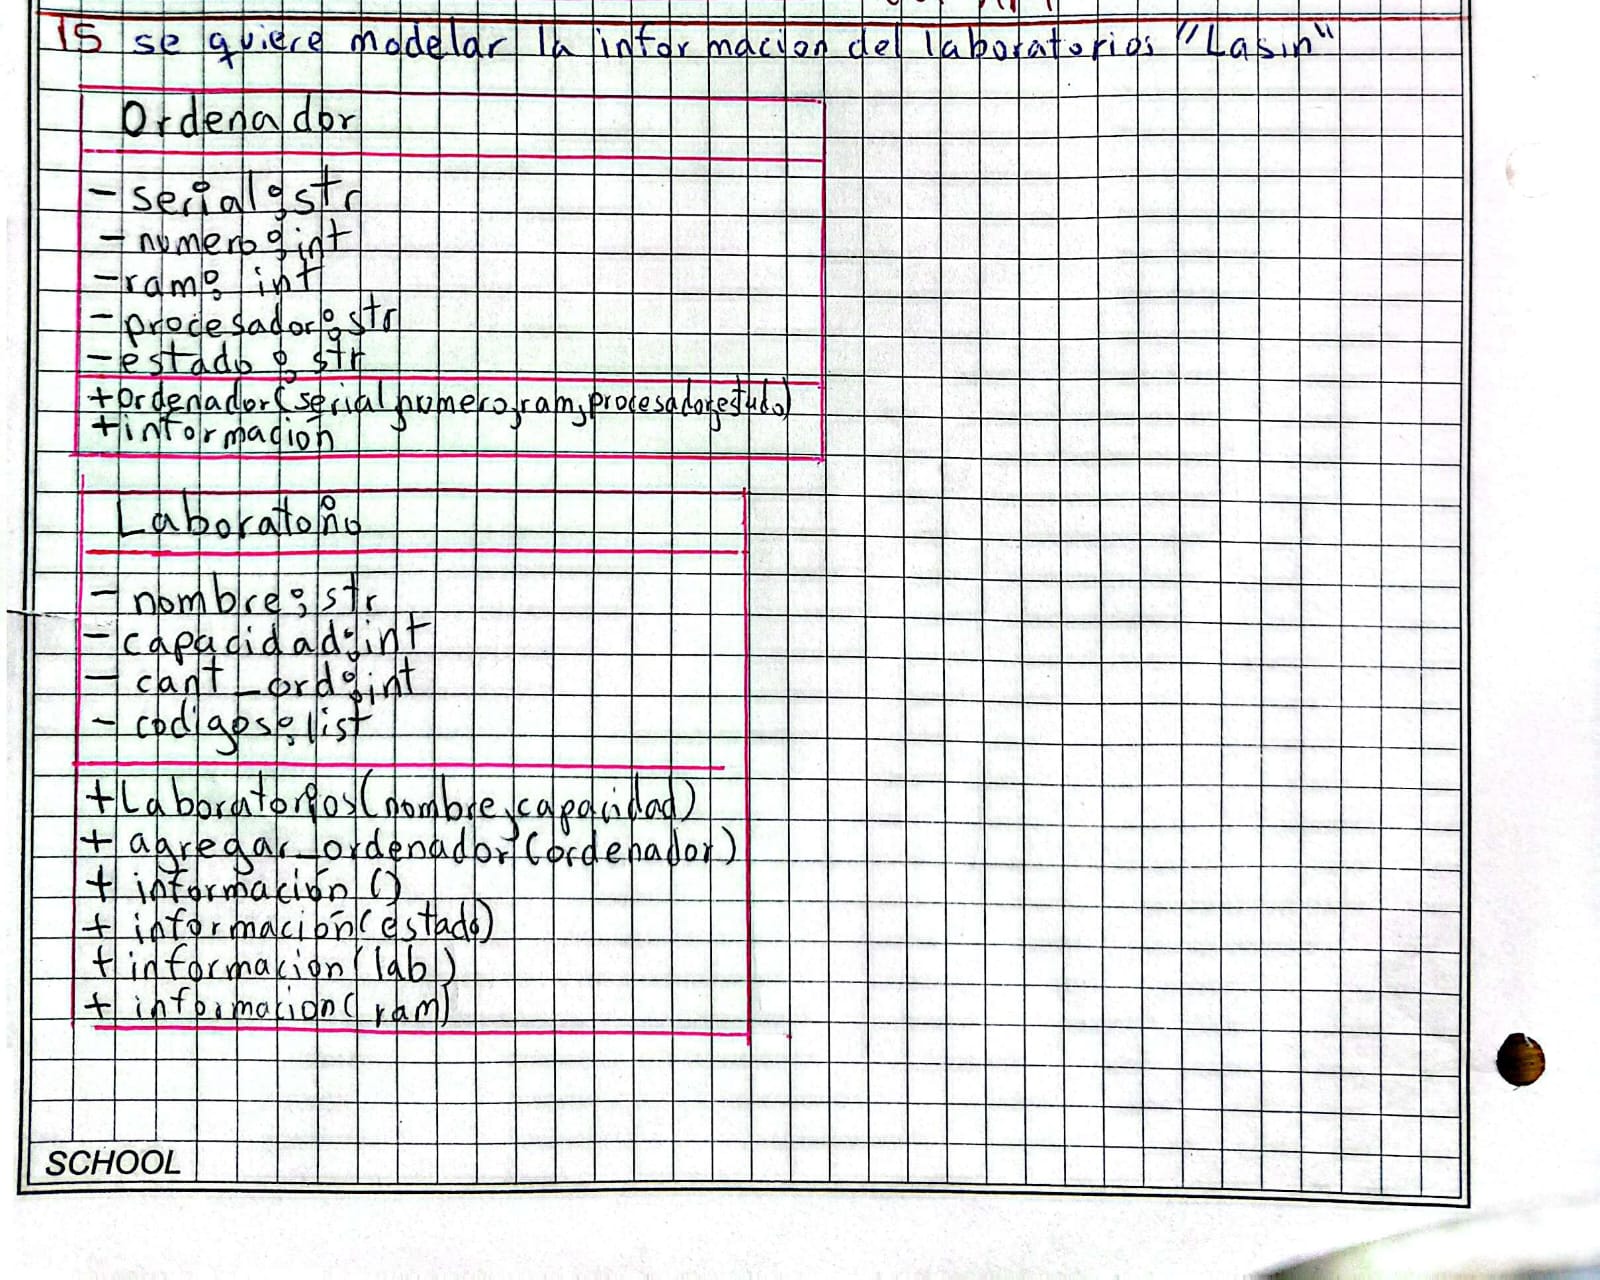 15 se quiere modelar la informacion del laboratorios "Lasin"
Ordenador
- serial: str
- numero: int
- ram: int
- procesador: str
- estado: str
+ Ordenador(serial, numero, ram, procesador, estado)
+ informacion
Laboratorio
- nombre: str
- capacidad: int
- cant_ord: int
- codigos: list
+ Laboratorios(nombre, capacidad)
+ agregar_ordenador(ordenador)
+ información()
+ información(estado)
+ informacion(lab)
+ informacion(ram)
SCHOOL